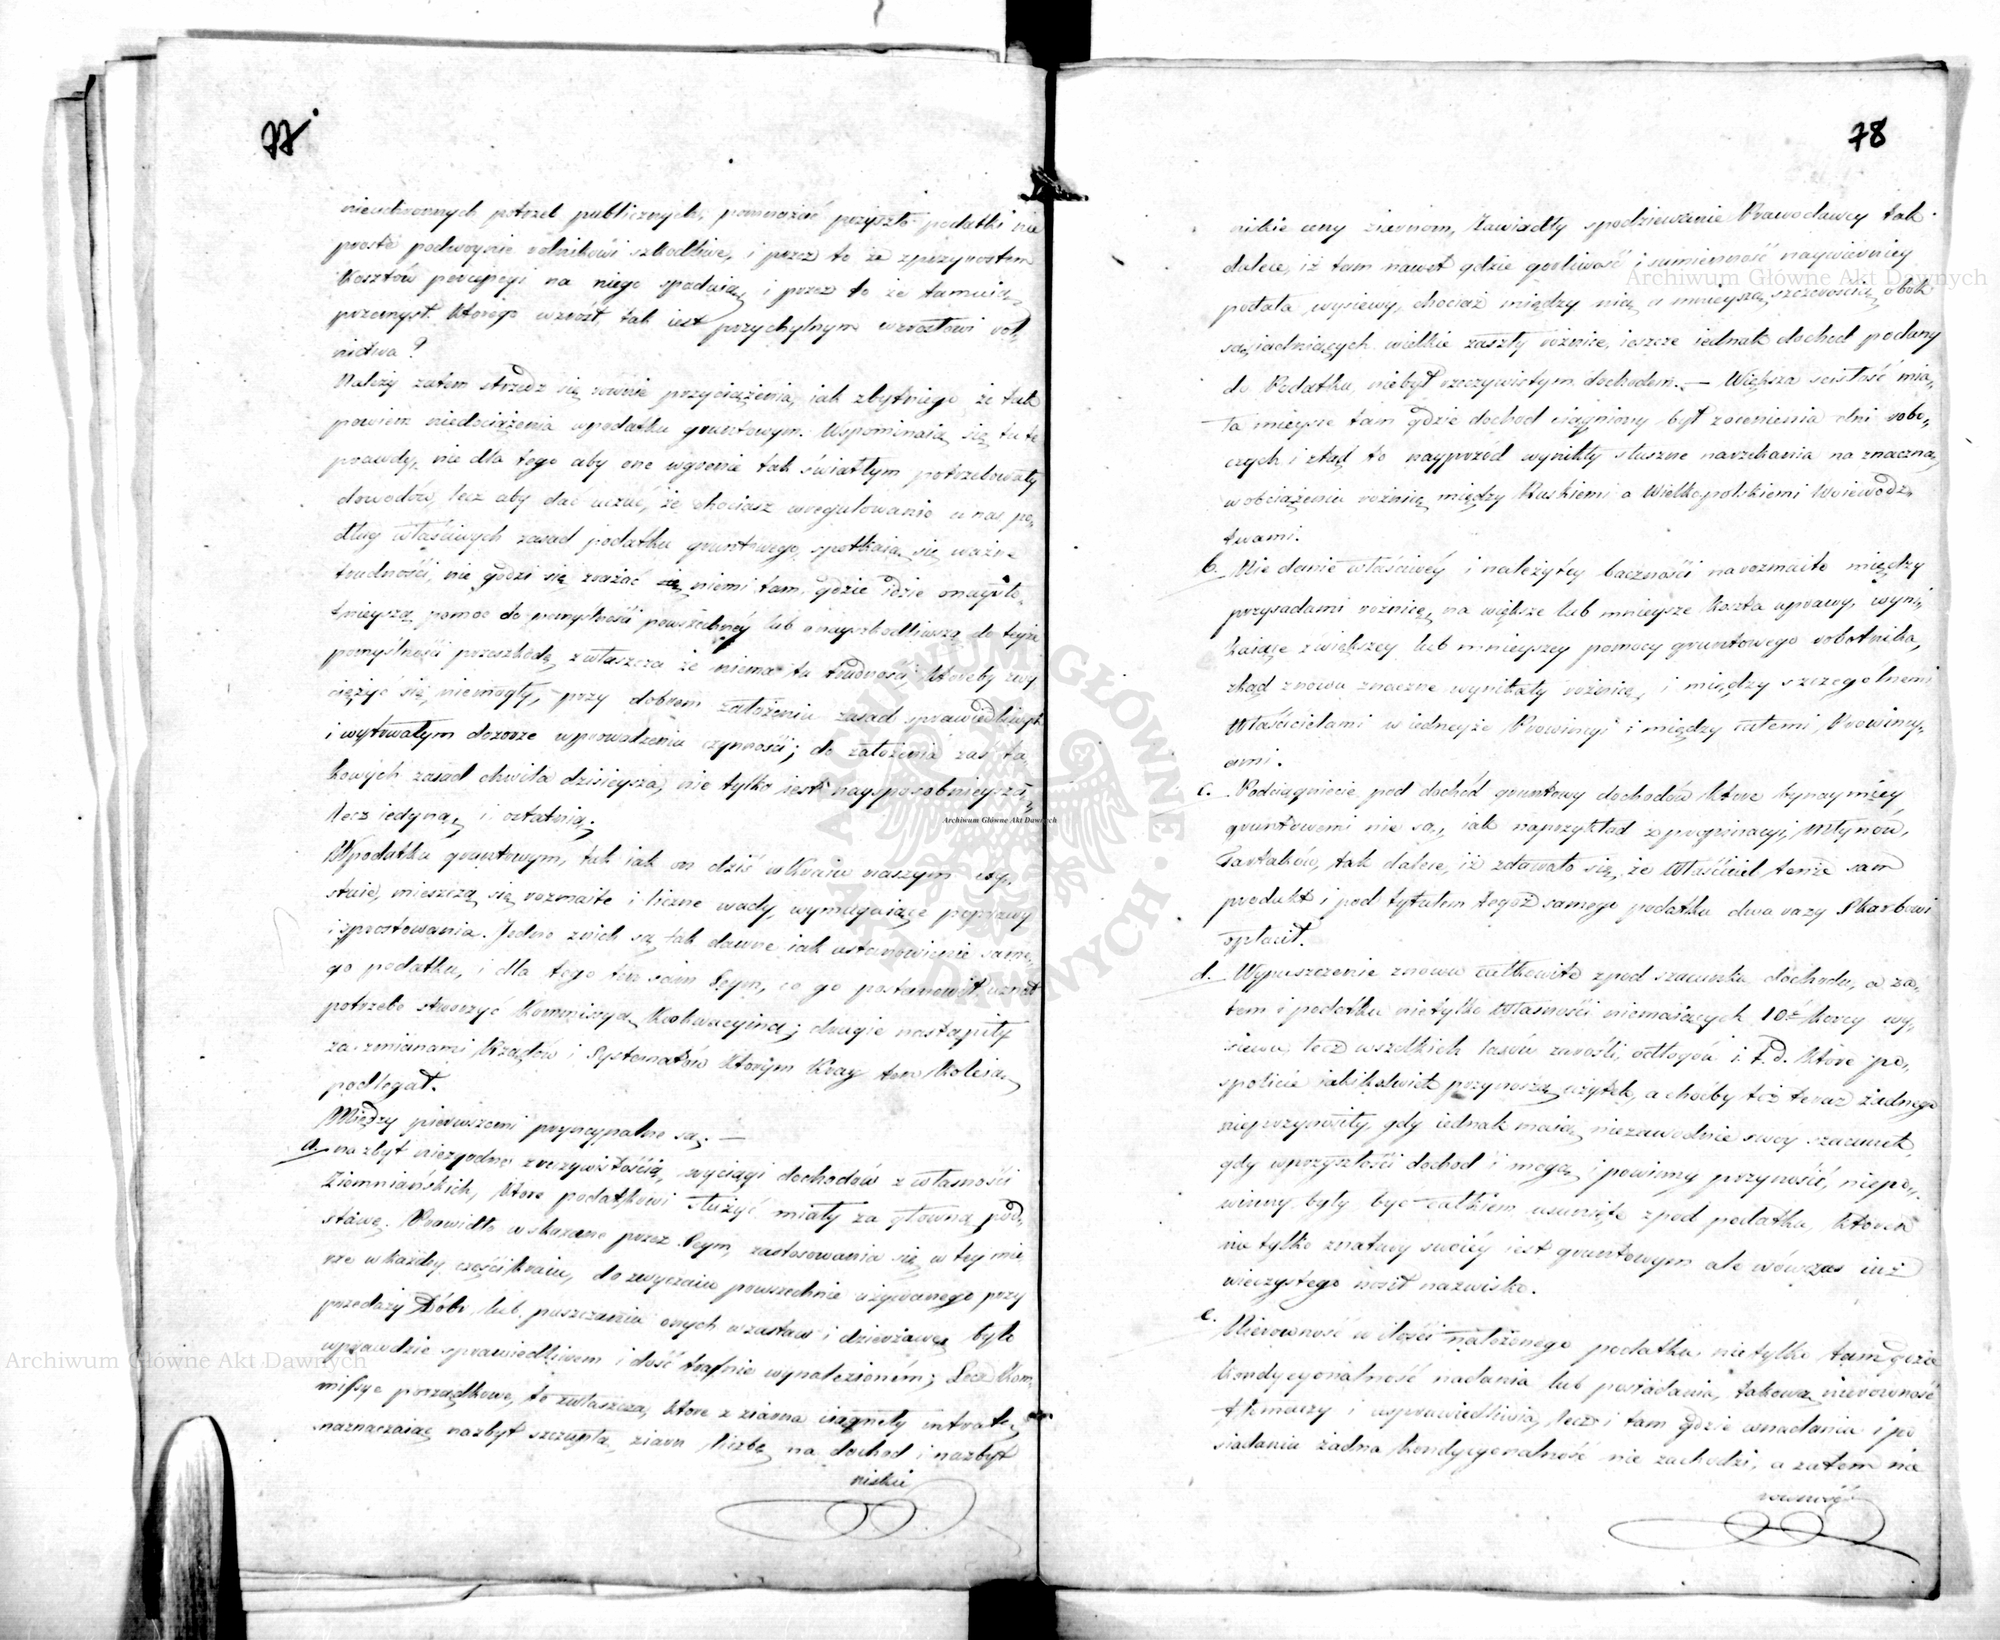 77.
nieuchronnych potrzeb publicznych, pomnażać przyszło podatki nie
proste podwóynie rolnikowi szkodliwe, i przez to że z przyrostem
kosztów percepcyi na niego spadaią, i przez to że tamuią
przemysł którego wzrost, tak iest przychylnym wzrostowi rol,
nictwa?
Należy zatem strzedz się równie przyciążenia, iak zbytniego, że tak
powiem niedociążenia w podatku gruntowym. Wspominaią się tu te
prawdy, nie dla tego aby one w gronie tak światłym potrzebowały
dowodów, lecz aby dać uczuć, że chociasz w uregulowanie u nas po,
dług właściwych zasad podatku gruntowego, spotkaią się ważne
trudności, nie godzi się zrażać niemi tam, gdzie idzie o nayisto,
tnieyszą pomoc do pomyślności powszechnéy lub o nayszkodliwszą do teyże
pomyślności przeszkodę, zwłaszcza że niema tu trudności któreby zwy
ciężyć się niemogły, przy dobrem założeniu zasad sprawiedliwych
i wytrwałym dozorze w prowadzeniu czynności; do założenia zaś ta,
kowych zasad chwila dzisieysza, nie tylko iest naysposobnieyszą,
lecz iedyną, i ostatnią.
W podatku gruntowym, tak iak on dziś w Kraiu naszym exy,
stuie, mieszczą się rozmaite i liczne wady, wymagaiące poprawy
i sprostowania. Jedne z nich są tak dawne iak ustanowienie same,
go podatku, i dla tego ten sam Seym, co go postanowił uznał
potrzebę stworzyć Kommissyą Koekwacyiną; drugie nastąpiły
za zmianami Rządów i Systematów którym Kray ten koleią
podlegał.
Między pierwszemi pryncypalne są. —
a. nazbyt niezgodne z rzeczywistością, wyciągi dochodów z własności
Ziemniańskich, które podatkowi służyć miały za główną pod,
stawę. Prawidło wskazane przez Seym, zastosowania się w tey mie
rze w każdey części kraiu, do zwyczaiu powszechnie używanego przy
przedaży Dóbr, lub puszczaniu onych w zastaw i dzierżawę było
wprawdzie sprawiedliwem i dość trafnie wynalezioném; Lecz Kom,
missye porządkowe, te zwłaszcza, które z ziarna ciągnęły intratę,
naznaczaiąc nazbyt szczupłą ziarn liczbę na dochod i nazbyt
niskie
78
niskie ceny ziarnom, zawiodły spodziewanie Prawodawcy tak
dalece, iż tam nawet gdzie gorliwość i sumienność naywierniey
podała wysiewy, chociaż między nią a mnieyszą szczerością obok
sąsiadniących wielkie zaszły różnice, ieszcze iednak dochod podany
do Podatku, niebył rzeczywistym dochodem. — Większa ścisłość mia,
ła mieysce tam gdzie dochod ciągniony był z ocenienia dni robo,
czych i ztąd to nayprzód wynikły słuszne narzekania na znaczną
w obciążeniu różnicę między Ruskiemi a Wielkopolskiemi Woiewodz,
twami.
b. Nie danie właściwéy i należytey baczności na rozmaite między
przysadami różnice, na większe lub mnieysze koszta uprawy, wyni,
kaiące z większey lub mnieyszey pomocy gruntowego robotnika,
zkąd znowu znaczne wynikały różnice, i między szczególnemi
Właścicielami w iedneyże Prowincyi i między całemi Prowincy,
ami.
c. Podciągnienie pod dochód gruntowy dochodów które bynaymniey
gruntowemi nie są, iak naprzykład z propinacyi, Młynów,
Tartaków, tak dalece, iż zdawało się, że Właściciel tenże sam
produkt i pod tytułem tegoż samego podatku dwa razy Skarbowi
opłacił.
d. Wypuszczenie znowu całkowite z pod szacunku dochodu, a za,
tem i podatku nietylko własności niemaiących 10ć korcy wy,
siewu, lecz wszelkich lasów zarośli, odłogów i. t. d. które po,
spolicie iakikolwiek przynoszą użytek, a choćby też teraz żadnego
nieprzynosiły, gdy iednak maią niezawodnie swoy szacunek,
gdy w przyszłości dochod i mogą i powinny przynosić, niepo,
winny były być całkiem usunięte z pod podatku, któren
nie tylko z natury swoiéy iest gruntowym ale wówczas iuż
wieczystego nosił nazwisko.
e. Nierowność w ilości nałożonego podatku nietylko tam gdzie
kondycyonalność nadania lub posiadania, takową nierowność
tłomaczy i usprawiedliwia, lecz i tam gdzie w nadaniu i po
siadaniu żadna kondycyonalność nie zachodzi, a zatem nie
Archiwum Główne Akt Dawnych
Archiwum Główne Akt Dawnych
Archiwum Główne Akt Dawnych
ARCHIWUM GŁÓWNE AKT DAWNYCH